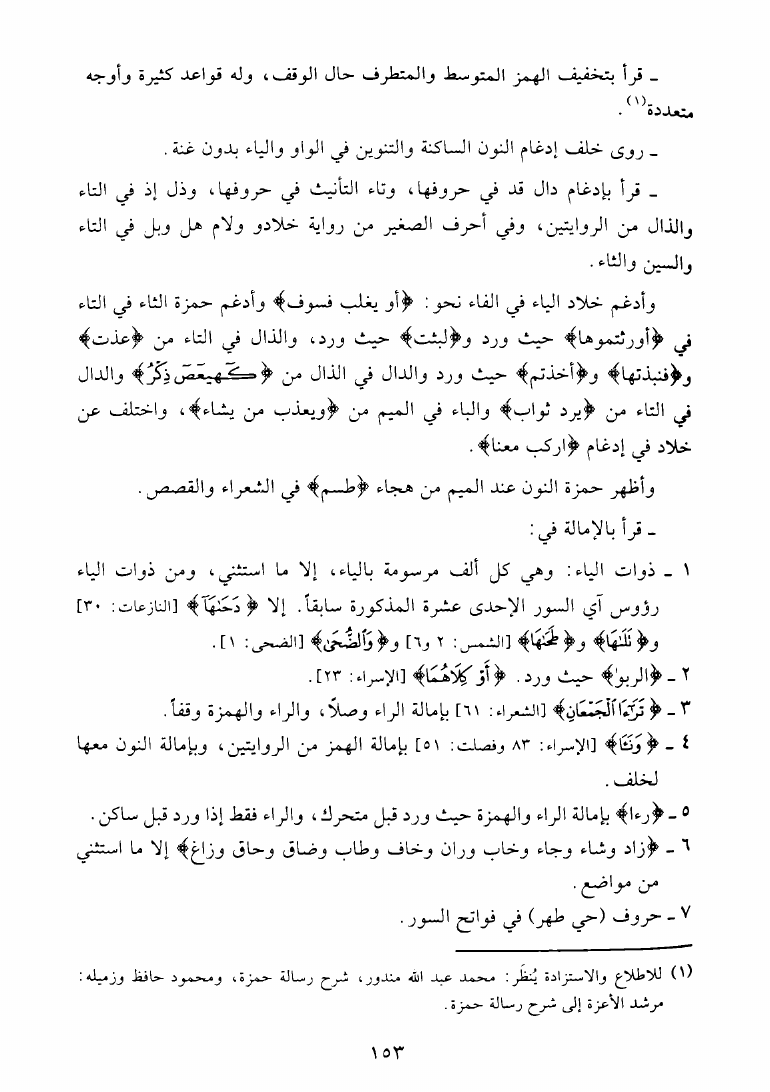 ـ قرأ بتخفيف الهمز المتوسط والمتطرف حال الوقف، وله قواعد كثيرة وأوجه
متعددة(١).
ـ روى خلف إدغام النون الساكنة والتنوين في الواو والياء بدون غنة.
ـ قرأ بإدغام دال قد في حروفها، وتاء التأنيث في حروفها، وذل إذ في التاء
والذال من الروايتين، وفي أحرف الصغير من رواية خلادو ولام هل وبل في التاء
والسين والثاء.
وأدغم خلاد الياء في الفاء نحو: ﴿أو يغلب فسوف﴾ وأدغم حمزة الثاء في التاء
في ﴿أورثتموها﴾ حيث ورد و﴿لبثت﴾ حيث ورد، والذال في التاء من ﴿عذت﴾
و﴿فنبذتها﴾ و﴿أخذتم﴾ حيث ورد والدال في الذال من ﴿كٓهيعٓصٓ ذِكْرُ﴾ والدال
في الثاء من ﴿يرد ثواب﴾ والباء في الميم من ﴿ويعذب من يشاء﴾، واختلف عن
خلاد في إدغام ﴿اركب معنا﴾.
وأظهر حمزة النون عند الميم من هجاء ﴿طسم﴾ في الشعراء والقصص.
ـ قرأ بالإمالة في:
١ ـ ذوات الياء: وهي كل ألف مرسومة بالياء، إلا ما استثني، ومن ذوات الياء
رؤوس آي السور الإحدى عشرة المذكورة سابقاً. إلا ﴿دَحَىٰهَآ﴾ [النازعات: ٣٠]
و﴿تَلَىٰهَا﴾ و﴿طَحَىٰهَا﴾ [الشمس: ٢ و٦] و﴿وَٱلضُّحَىٰ﴾ [الضحى: ١].
٢ ـ ﴿الربوٰا﴾ حيث ورد. ﴿أَوْ كِلَاهُمَا﴾ [الإسراء: ٢٣].
٣ ـ ﴿تَرَٰٓءَا ٱلْجَمْعَانِ﴾ [الشعراء: ٦١] بإمالة الراء وصلاً، والراء والهمزة وقفاً.
٤ ـ ﴿وَنَـَٔا﴾ [الإسراء: ٨٣ وفصلت: ٥١] بإمالة الهمز من الروايتين، وبإمالة النون معها
لخلف.
٥ ـ ﴿رءا﴾ بإمالة الراء والهمزة حيث ورد قبل متحرك، والراء فقط إذا ورد قبل ساكن.
٦ ـ ﴿زاد وشاء وجاء وخاب وران وخاف وطاب وضاق وحاق وزاغ﴾ إلا ما استثني
من مواضع.
٧ ـ حروف (حي طهر) في فواتح السور.
(١) للاطلاع والاستزادة يُنظَر: محمد عبد الله مندور، شرح رسالة حمزة، ومحمود حافظ وزميله:
مرشد الأعزة إلى شرح رسالة حمزة.
١٥٣